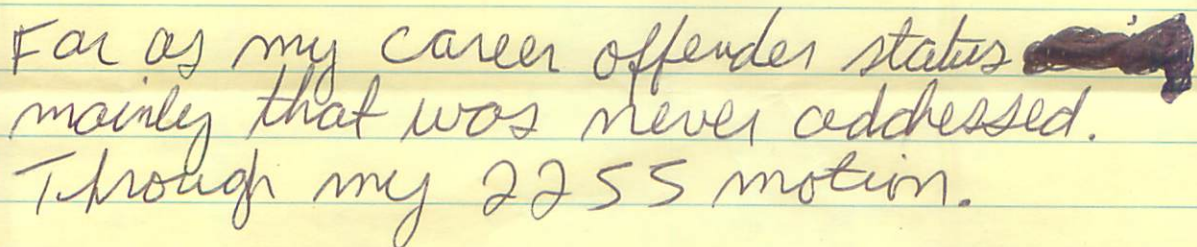 Far as my career offender status
mainly that was never addressed.
Through my 2255 motion.